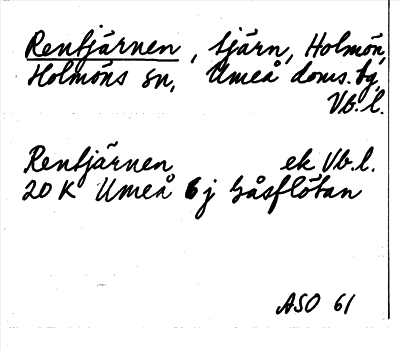 Rentjärnen, tjärn, Holmön,
Holmöns sn, Umeå doms.bg,
Vb.l.
Rentjärnen ek Vb.l.
20 K Umeå 6 j Gåsflötan
ASO 61